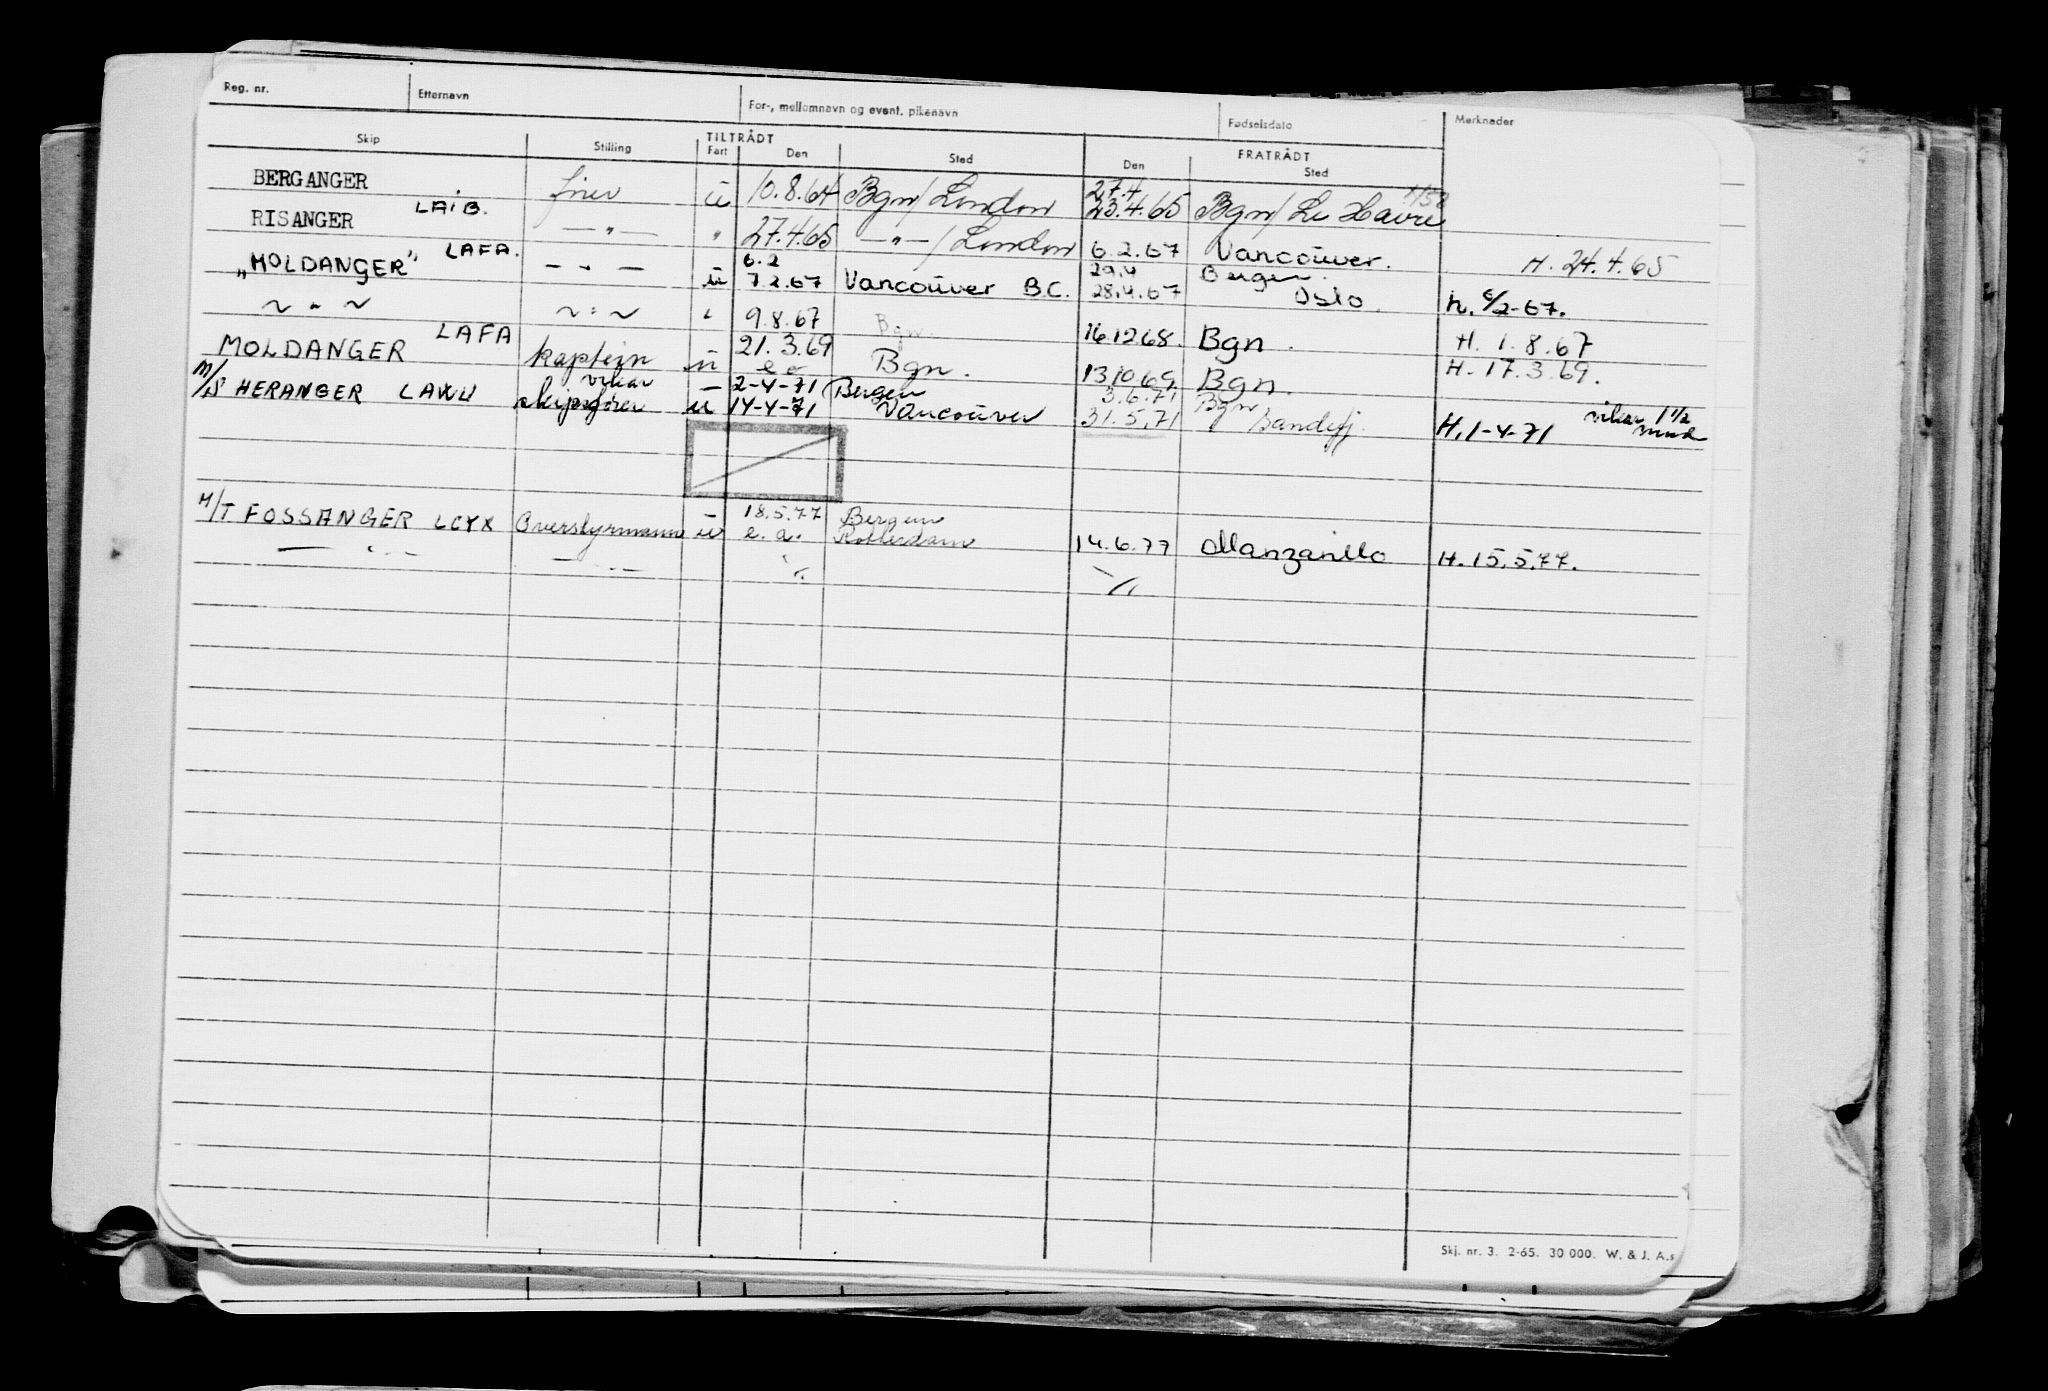 Reg. nr. Etternavn For-, mellomnavn og event. pikenavn Fødselsdato Merknader
Skip Stilling TILTRÅDT FRATRÅDT
Fart Den Sted Den Sted
BERGANGER fører u 10.8.64 Bgn/London 27.4 23.4.65 Bgn/Le Havre
RISANGER LAIB. —"— " 27.4.65 —"—/London 6.2.67 Vancouver. H. 24.4.65
„MOLDANGER" LAFA. —"— u 6.2 7.2.67 Vancouver B.C. 29.4 28.4.67 Bergen. Oslo. h. 6/2-67.
~"~ ~"~ 9.8.67 Bgn. 16.12 68. Bgn. H. 1.8.67
MOLDANGER LAFA kaptein u 21.3.69 Bgn. 13.10.69. Bgn. H. 17.3.69.
M/S HERANGER LAWU vikar skipsfører – u 2-4-71 14-4-71 Bergen Vancouver 3.6.71 31.5.71 Bgn Sandefj. H. 1-4-71 vikar 1 1/2 mnd
M/T FOSSANGER LCYX Overstyrmann – u 18.5.77 e.a. Bergen Rotterdam 14.6.77 Manzanillo H. 15.5.77.
—"— —"—
Skj. nr. 3. 2-65. 30 000. W. & J. A.s